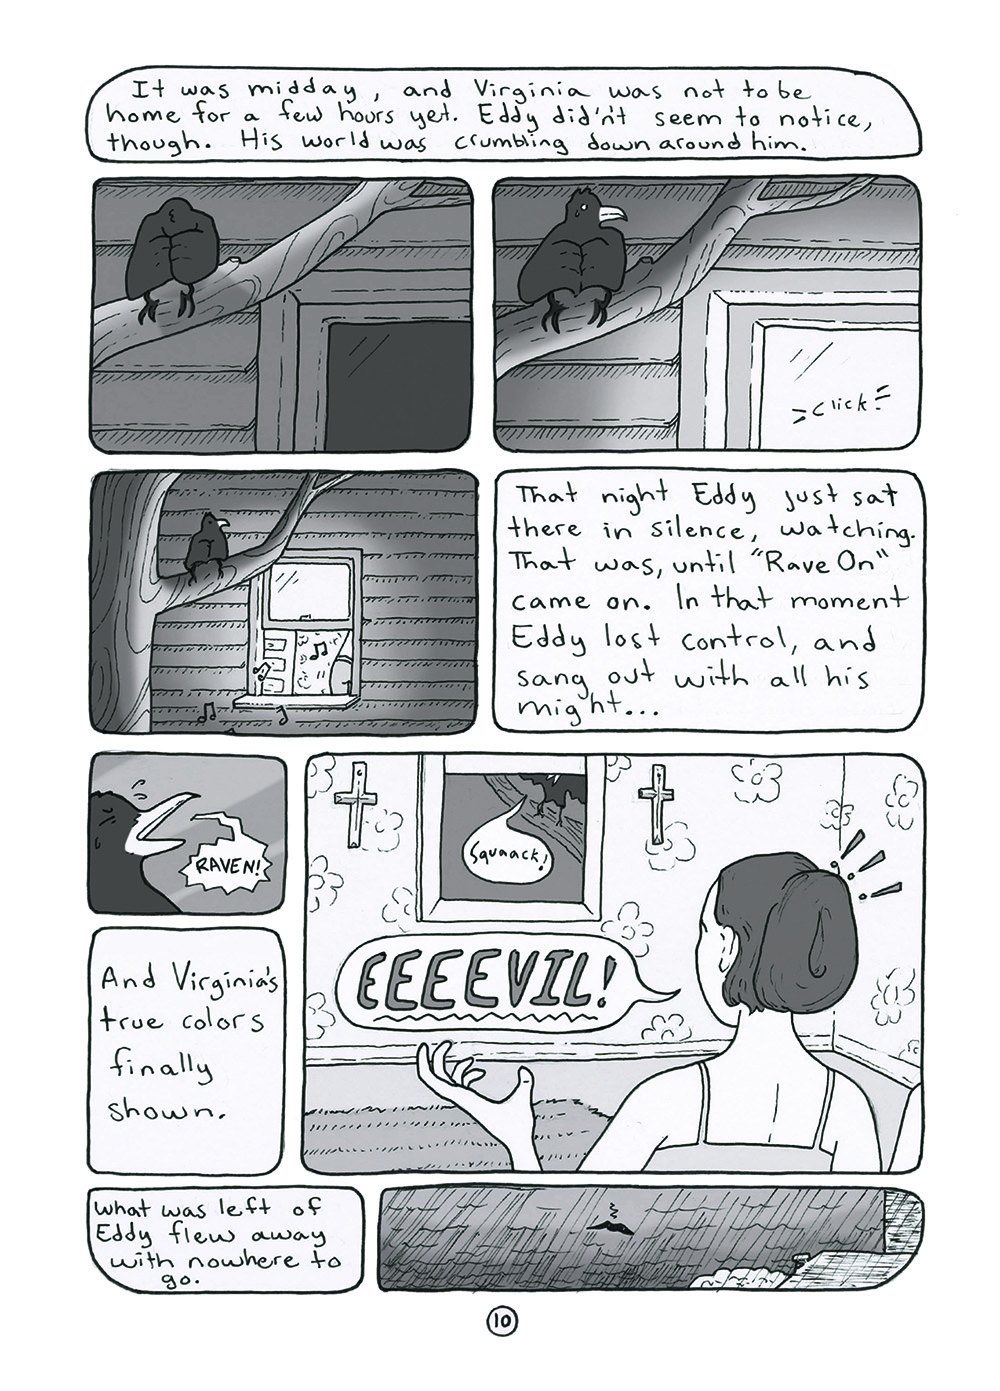 It was midday, and Virginia was not to be
home for a few hours yet. Eddy did'nt seem to notice,
though. His world was crumbling down around him.
Click
That night Eddy just sat
there in silence, watching.
That was, until "Rave On"
came on. In that moment
Eddy lost control, and
sang out with all his
might...
RAVEN!
Squaack!
EEEEVIL!
And Virginia's
true colors
finally
shown.
What was left of
Eddy flew away
with nowhere to
go.
10